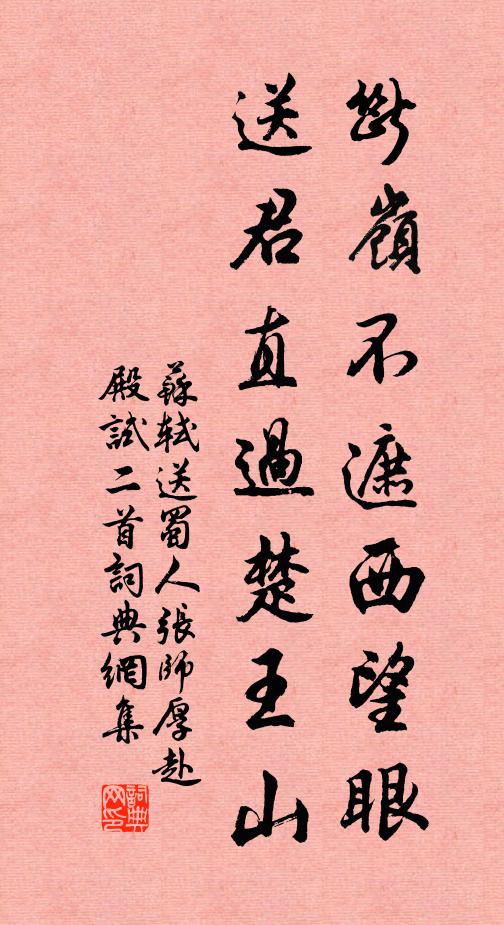 斷嶺不遮西望眼
送君直過楚王山
蘇軾送蜀人張師厚赴
殿試二首詞典網集
詞典网印